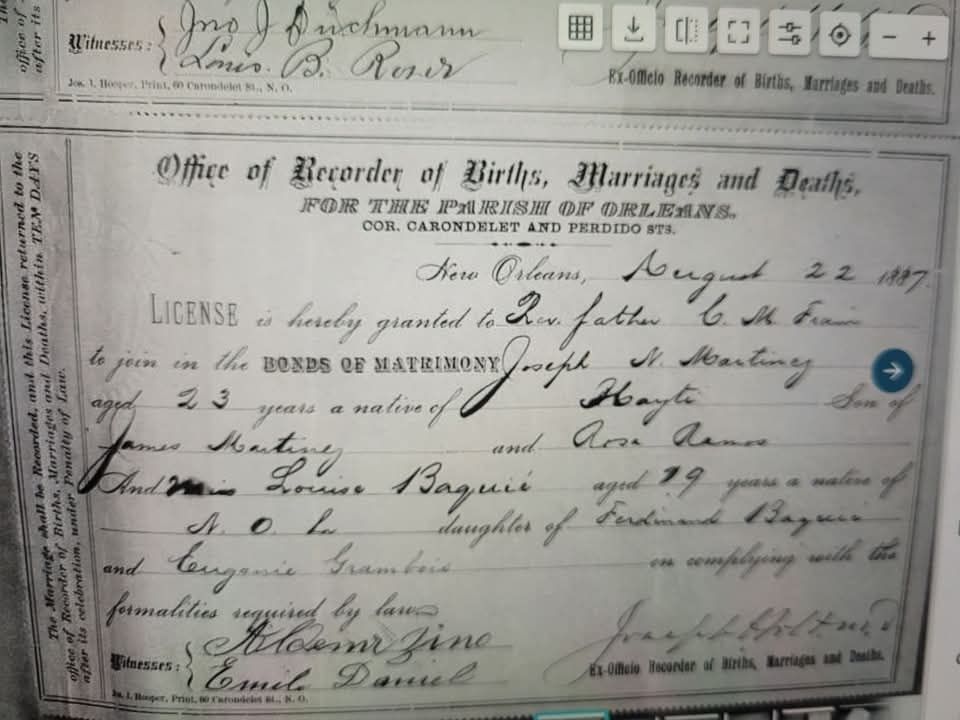 Witnesses: { Jno J Duchmann
Louis. B. Roser
Jos. I. Hooper, Print, 60 Carondelet St., N. O.
Ex-Officio Recorder of Births, Marriages and Deaths.
The Marriage shall be Recorded, and this License returned to the
office of Recorder of Births, Marriages and Deaths, within TEN DAYS
after its celebration, under Penalty of Law.
Office of Recorder of Births, Marriages and Deaths,
FOR THE PARISH OF ORLEANS,
COR. CARONDELET AND PERDIDO STS.
New Orleans, August 22 1887.
LICENSE is hereby granted to Rev. father C. M.
to join in the BONDS OF MATRIMONY Joseph N. Martinez
aged 23 years a native of Hayti Son of
James Martinez and Rosa Ramos
And Miss Louise Baquié aged 19 years a native of
N. O. La daughter of Ferdinand Baquié
and Eugenie Grambois on complying with the
formalities required by law
Witnesses: {
Emile Daniel
Ex-Officio Recorder of Births, Marriages and Deaths.
Jos. I. Hooper, Print, 60 Carondelet St., N. O.